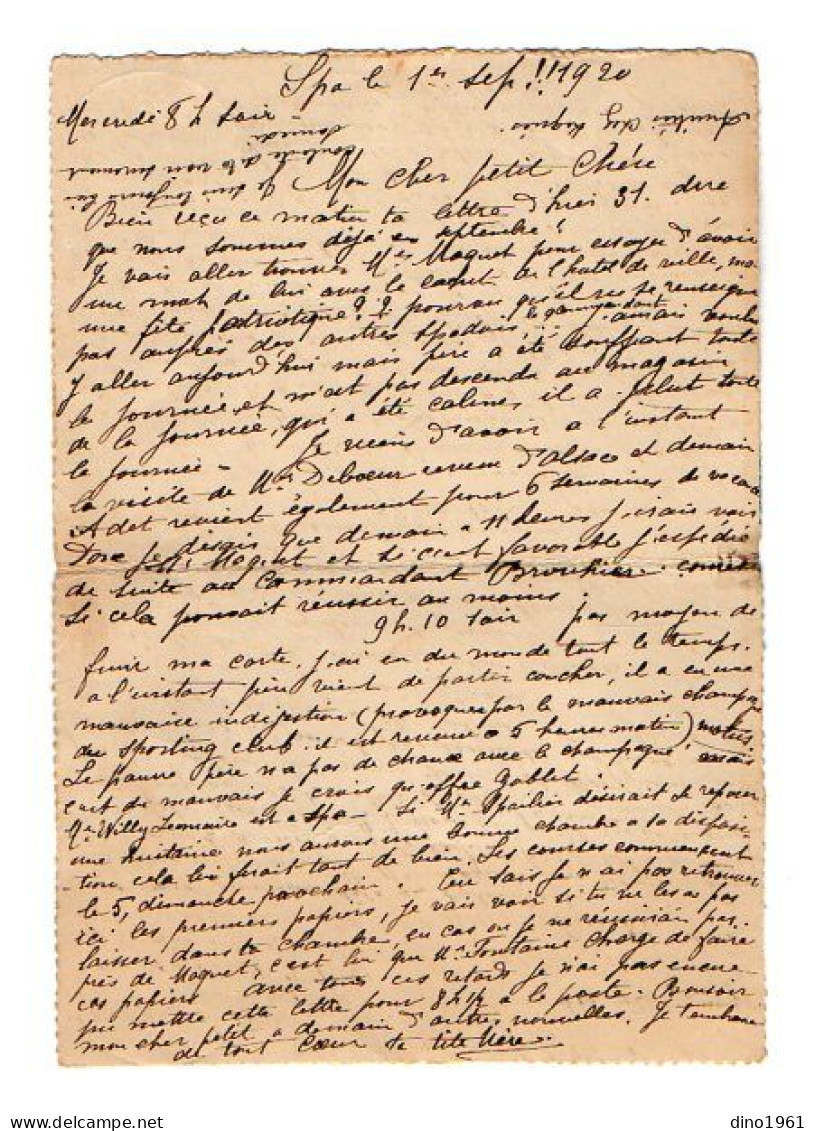 Spa le 1er sep!! 1920
Mercredi 8 h soir
Mon cher petit Chéri
Bien reçu ce matin ta lettre d'hier 31. dire
que nous sommes déjà en septembre!
Je vais aller trouver Mr Maquet pour essayer d'avoir
un mot de lui avec le cachet de l'hotel de ville,
une fête patriotique?? pourvu qu'il ne se renseigne
pas auprès des autres spadois!!
j'avais voulu
y aller aujourd'hui mais père a été souffrant toute
la journée et n'est pas descendu au magasin
de la journée, qui a été calme, il a plut toute
la journée - Je viens d'avoir a l'instant
la visite de Mr Deboeur revenu d'alsace et demain
Adet revient également pour 6 semaines de
Donc je disais que demain a 11 heures j'irais voir
Mr Maquet et si c'est favorable j'expédie
de suite au Commandant
Si cela pouvait réussir au moins
9 h. 10 soir pas moyen de
finir ma carte. j'ai eu du monde tout le temps.
a l'instant père vient de partir coucher, il a eu une
mauvaise indigestion (provoquée par le mauvais champagne
du Sporting club. il est revenu a 5 heures matin)
Le pauvre père n'a pas de chance avec le champagne mais
c'est du mauvais je crois
Mr Willy Lemaire est a Spa - Si Mr désirait se reposer
une huitaine nous avons une bonne chambre a sa disposi
-tion cela lui ferait tant de bien. Les courses commencent
le 5, dimanche prochain. Tu sais je n'ai pas retrouver
ici les premiers papiers, je vais voir si tu ne les a pas
laisser dans ta chambre, en cas ou je ne réussirais pas
près de Maquet, c'est lui que Mr Fontaine charge de faire
ces papiers avec tous ces retards je n'ai pas encore
pu mettre cette lettre pour 8h1/4 a la poste. Bonsoir
mon cher petit a demain d'autres nouvelles. Je t'embrasse
de tout cœur ta tite Mère